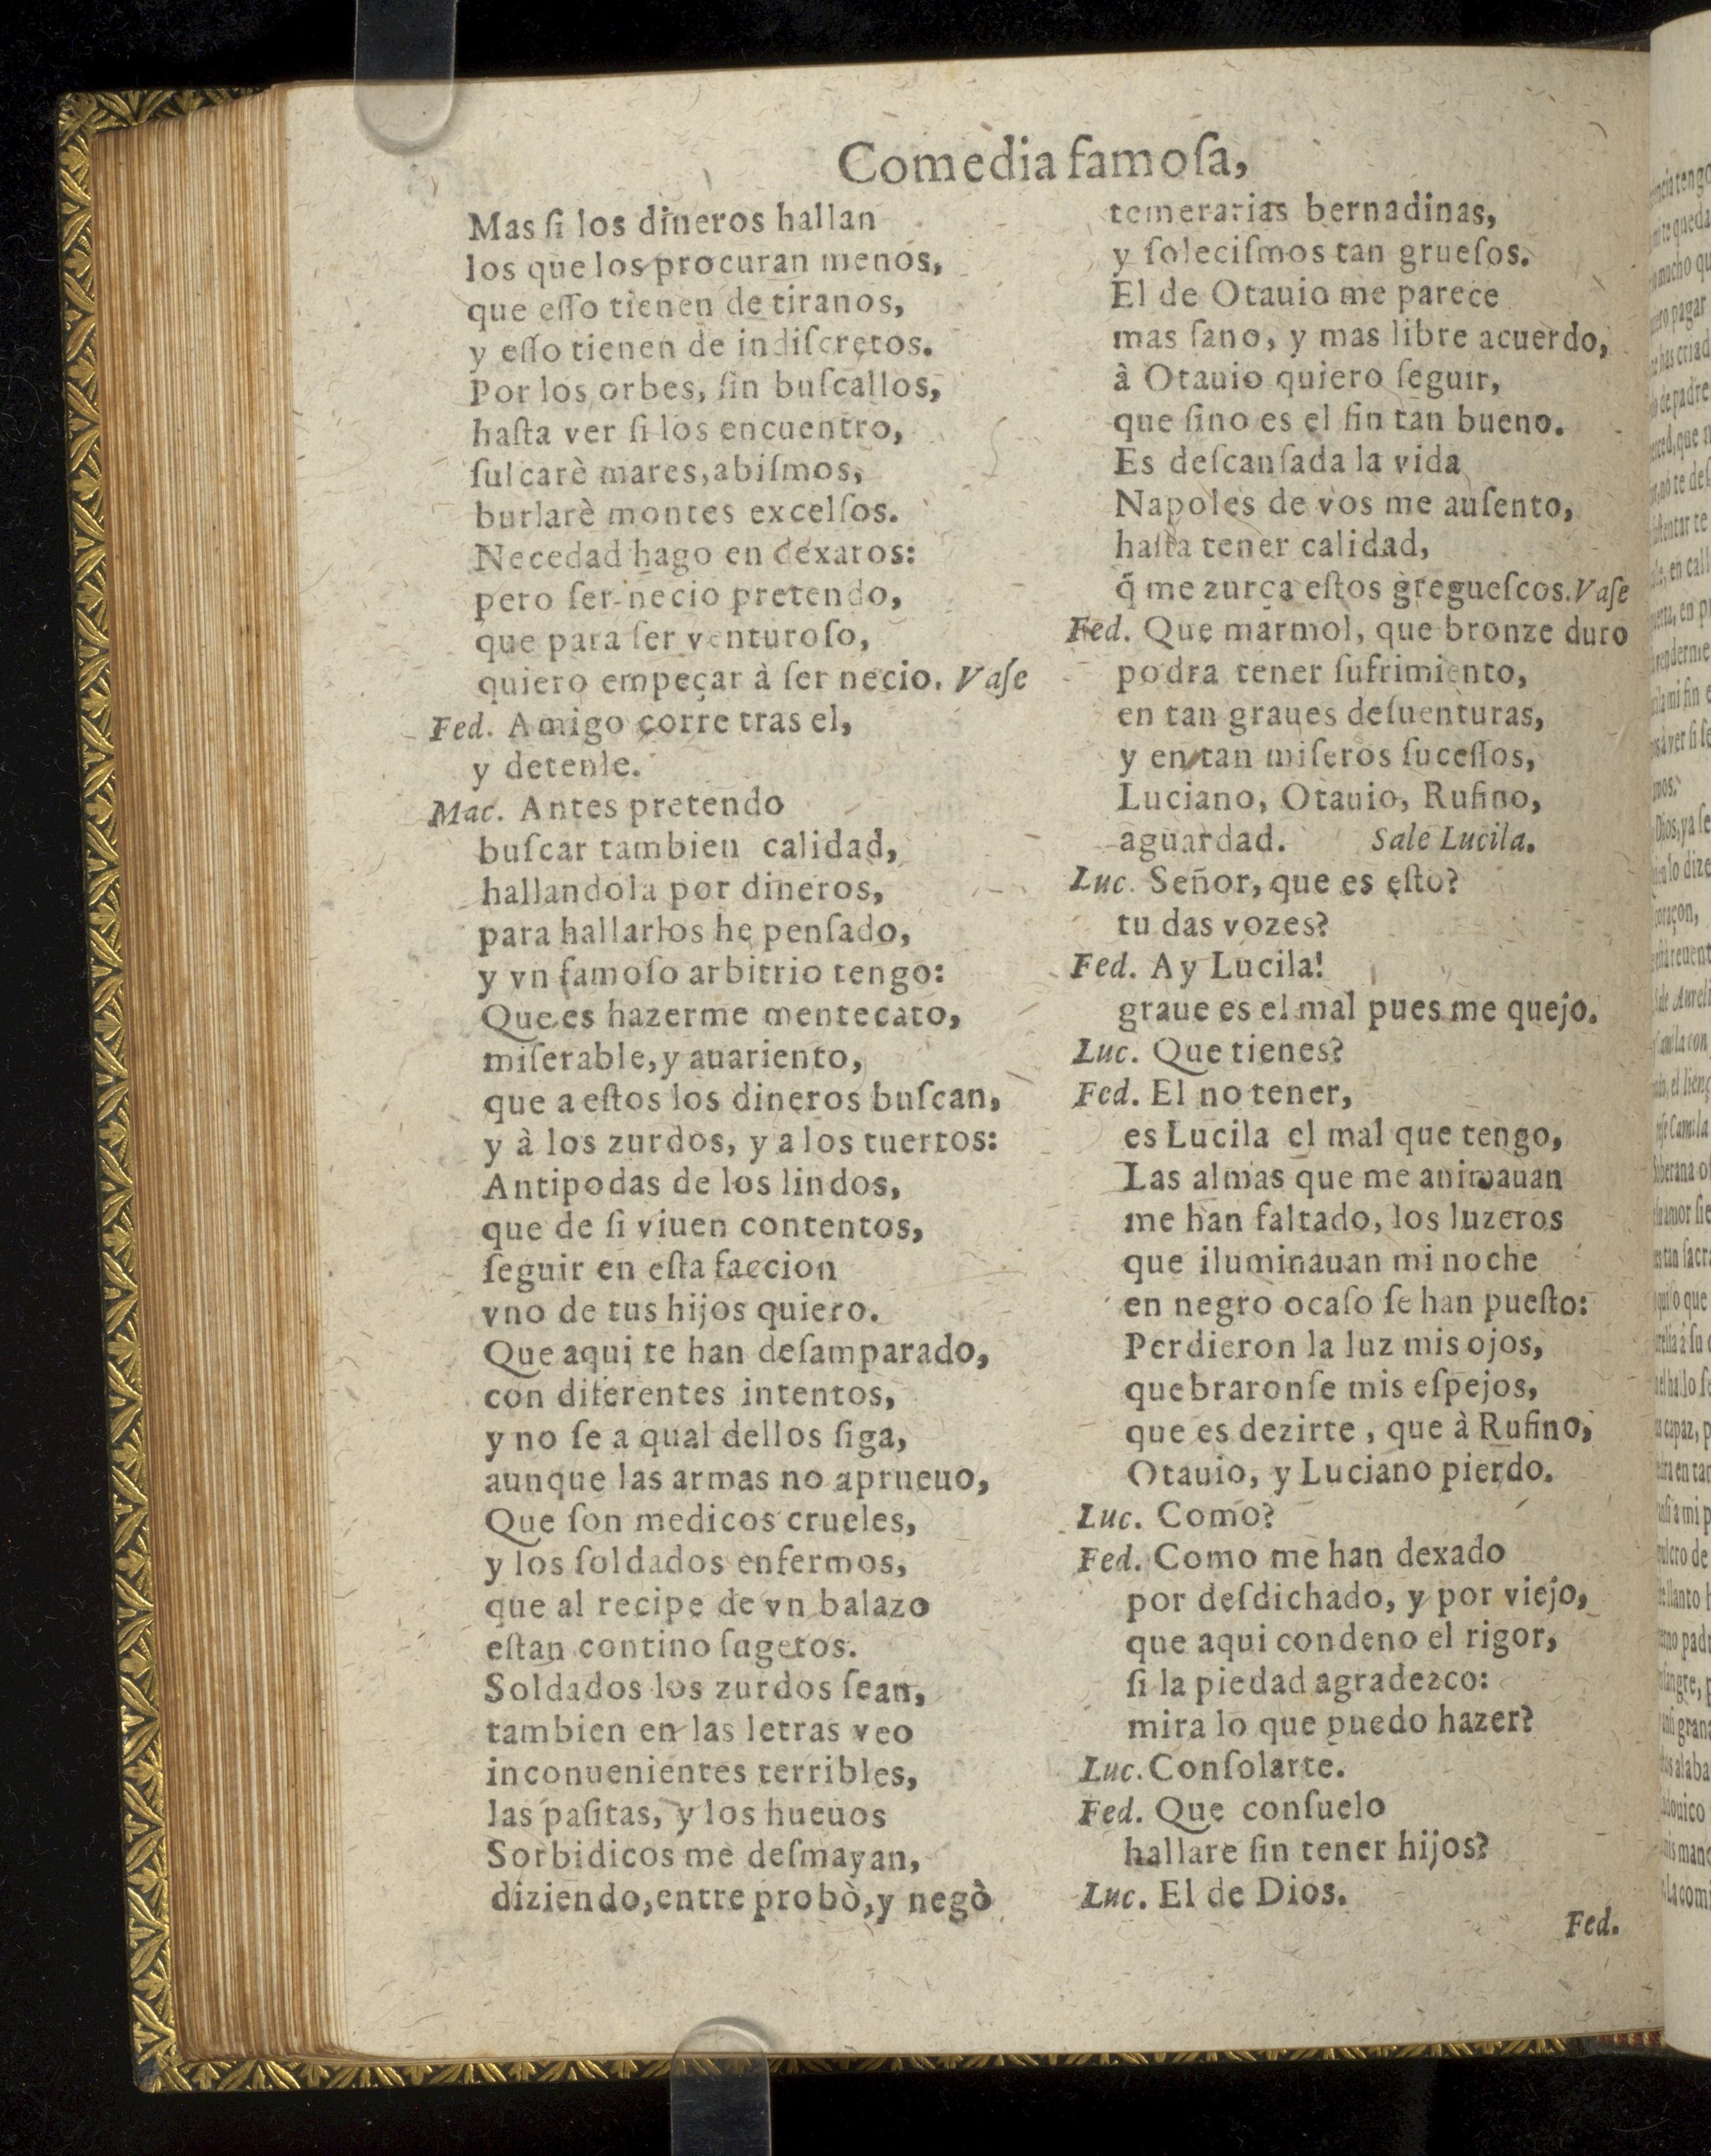 Comedia famoſa,
Mas ſi los dineros hallan
los que los procuran menos,
que eſſo tienen de tiranos,
y eſſo tienen de indiſcretos.
Por los orbes, ſin buſcallos,
haſta ver ſi los encuentro,
ſulcarè mares, abiſmos,
burlarè montes excelſos.
Necedad hago en dexaros:
pero ſer necio pretendo,
que para ſer venturoſo,
quiero empeçar à ſer necio. Vaſe
Fed. Amigo corre tras el,
y detenle.
Mac. Antes pretendo
buſcar tambien calidad,
hallandola por dineros,
para hallarlos he penſado,
y vn famoſo arbitrio tengo:
Que es hazerme mentecato,
miſerable, y auariento,
que a eſtos los dineros buſcan,
y à los zurdos, y a los tuertos:
Antipodas de los lindos,
que de ſi viuen contentos,
ſeguir en eſta faccion
vno de tus hijos quiero.
Que aqui te han deſamparado,
con diferentes intentos,
y no ſe a qual dellos ſiga,
aunque las armas no aprueuo,
Que ſon medicos crueles,
y los ſoldados enfermos,
que al recipe de vn balazo
eſtan contino ſugetos.
Soldados los zurdos ſean,
tambien en las letras veo
inconuenientes terribles,
las paſitas, y los hueuos
Sorbidicos me deſmayan,
diziendo, entre probò, y negò
temerarias bernadinas,
y ſoleciſmos tan grueſos.
El de Otauio me parece
mas ſano, y mas libre acuerdo,
à Otauio quiero ſeguir,
que ſino es el fin tan bueno.
Es deſcanſada la vida
Napoles de vos me auſento,
haſta tener calidad,
q̃ me zurça eſtos gregueſcos. Vaſe
Fed. Que marmol, que bronze duro
podra tener ſufrimiento,
en tan graues deſuenturas,
y en tan miſeros ſuceſſos,
Luciano, Otauio, Rufino,
aguardad. Sale Lucila.
Luc. Señor, que es eſto?
tu das vozes?
Fed. Ay Lucila!
graue es el mal pues me quejo.
Luc. Que tienes?
Fed. El no tener,
es Lucila el mal que tengo,
Las almas que me animauan
me han faltado, los luzeros
que iluminauan mi noche
en negro ocaſo ſe han pueſto:
Perdieron la luz mis ojos,
quebraronſe mis eſpejos,
que es dezirte, que à Rufino,
Otauio, y Luciano pierdo.
Luc. Como?
Fed. Como me han dexado
por deſdichado, y por viejo,
que aqui condeno el rigor,
ſi la piedad agradezco:
mira lo que puedo hazer?
Luc. Conſolarte.
Fed. Que conſuelo
hallare ſin tener hijos?
Luc. El de Dios.
Fed.